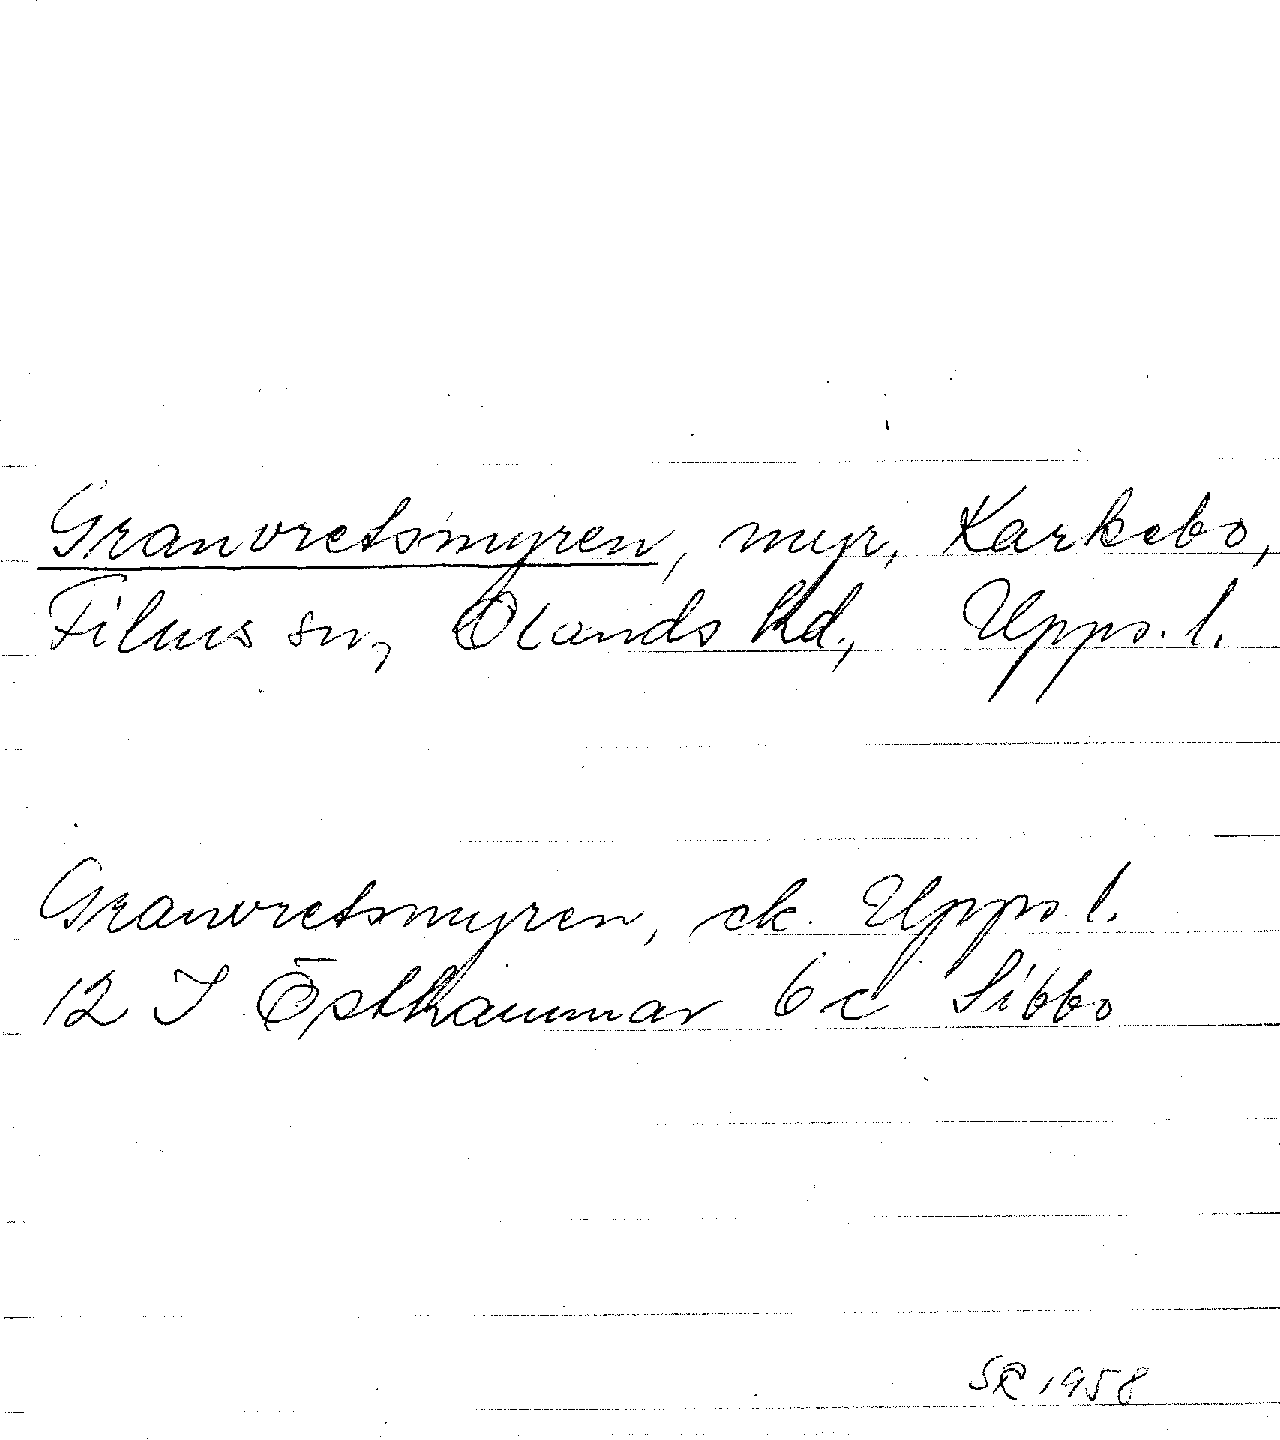 Granvretsmyren, myr, Karkebo,
Films sn, Olands hd, Upps. l.
Granvretsmyren, ek. Upps l.
12 I Östhammar 6 c Sibbo
SR 1958